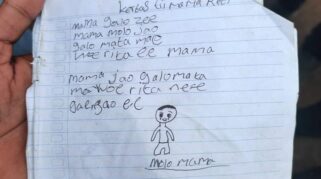 kertas tii mama Reti
mama galo zee
mama molo jao
galo mata mae
woe rita ee mama
mama jao galo mata
ma woe rita ne'e
gae ngao ee
molo mama